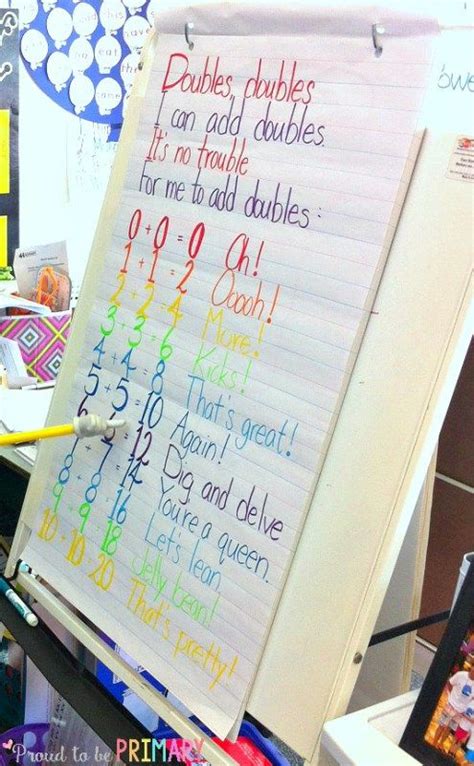 Doubles, doubles
I can add doubles.
It's no trouble
For me to add doubles:
0 + 0 = 0 Oh!
1 + 1 = 2 Ooooh!
2 + 2 = 4 More!
3 + 3 = 6 Kicks!
4 + 4 = 8 That's great!
5 + 5 = 10 Again!
6 = 12 Dig and delve
7 + 7 = 14 You're a queen.
8 + 8 = 16 Let's lean.
9 + 9 = 18 Jelly bean!
10 + 10 = 20 That's pretty!
Proud to be PRIMARY